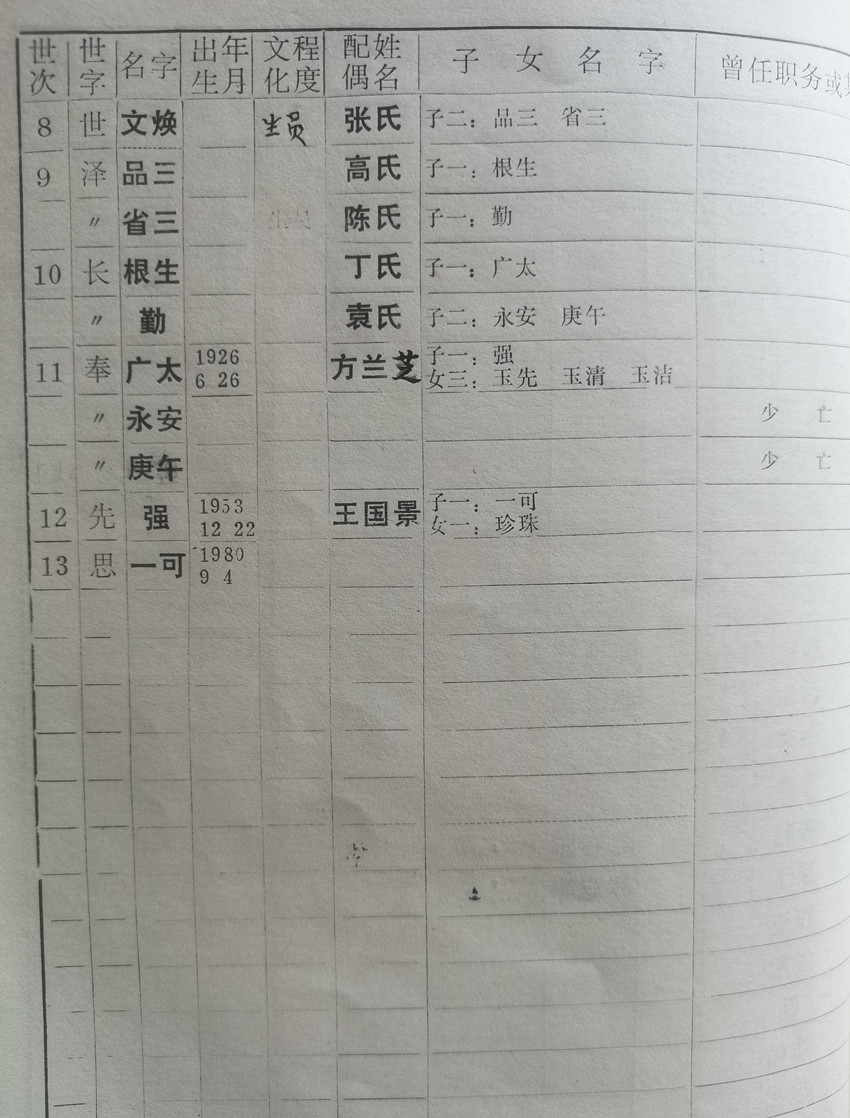 世次 世字 名字 出生年月 文化程度 配偶姓名 子女名字 曾任职务或
8 世 文焕 生员 张氏 子二：品三 省三
9 泽 品三 高氏 子一：根生
〃 省三 陈氏 子一：勤
10 长 根生 丁氏 子一：广太
〃 勤 袁氏 子二：永安 庚午
11 奉 广太 1926 6 26 方兰芝 子一：强 女三：玉先 玉清 玉洁
〃 永安 少亡
〃 庚午 少亡
12 先 强 1953 12 22 王国景 子一：一可 女一：珍珠
13 思 一可 1980 9 4